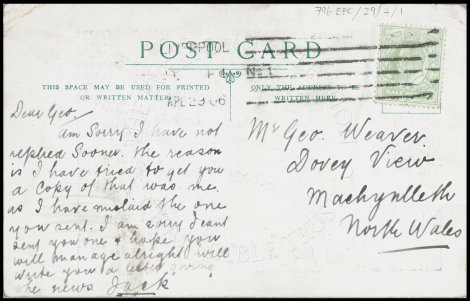 796 EPC/29/4/1
LIVERPOOL
POST CARD
No 1
APL 29 06
THIS SPACE MAY BE USED FOR PRINTED
OR WRITTEN MATTER
ONLY THE ADDRESS TO BE
WRITTEN HERE
Dear Geo.
Am Sorry I have not
replied Sooner. the reason
is I have tried to get you
a Copy of that was me.
as I have mislaid the one
you sent. I am sorry I cant
sent you one & hope you
will manage alright will
write you a letter giving
the news Jack
Mr Geo. Weaver
Dovey View
Machynlleth
North Wales